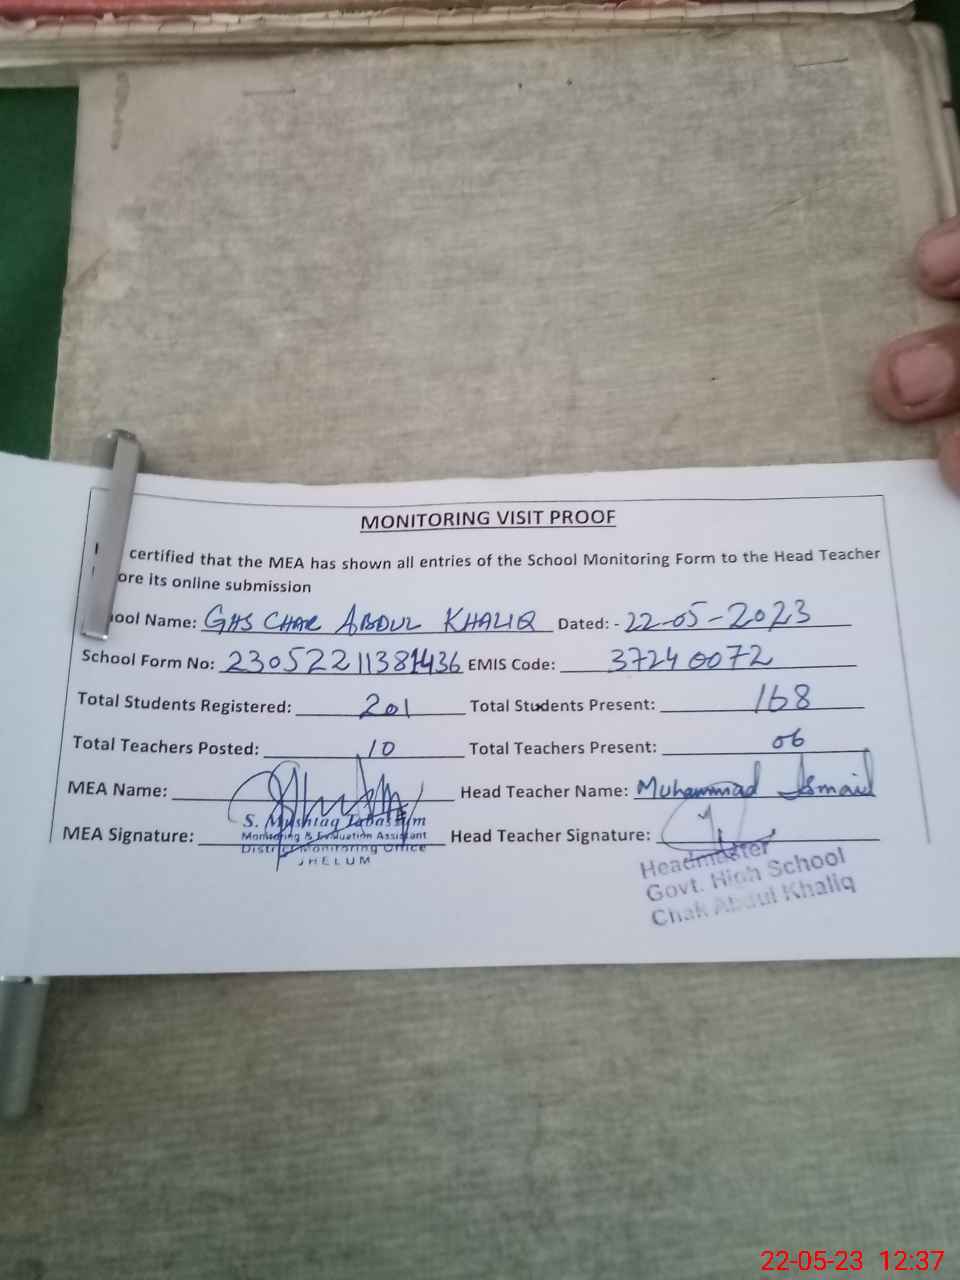 MONITORING VISIT PROOF
certified that the MEA has shown all entries of the School Monitoring Form to the Head Teacher
ore its online submission
ool Name: GHS CHAK ABDUL KHALIQ Dated: - 22-05-2023
School Form No: EMIS Code: 37240072
Total Students Registered: 201 Total Students Present: 168
Total Teachers Posted: 10 Total Teachers Present: 06
MEA Name: Head Teacher Name: Muhammad Ismail
S. Mushtaq Tabassum
MEA Signature: Monitoring & Evaluation Assistant Head Teacher Signature:
District Monitoring Office
JHELUM
Headmaster
Govt. High School
Chak Abdul Khaliq
22-05-23 12:37